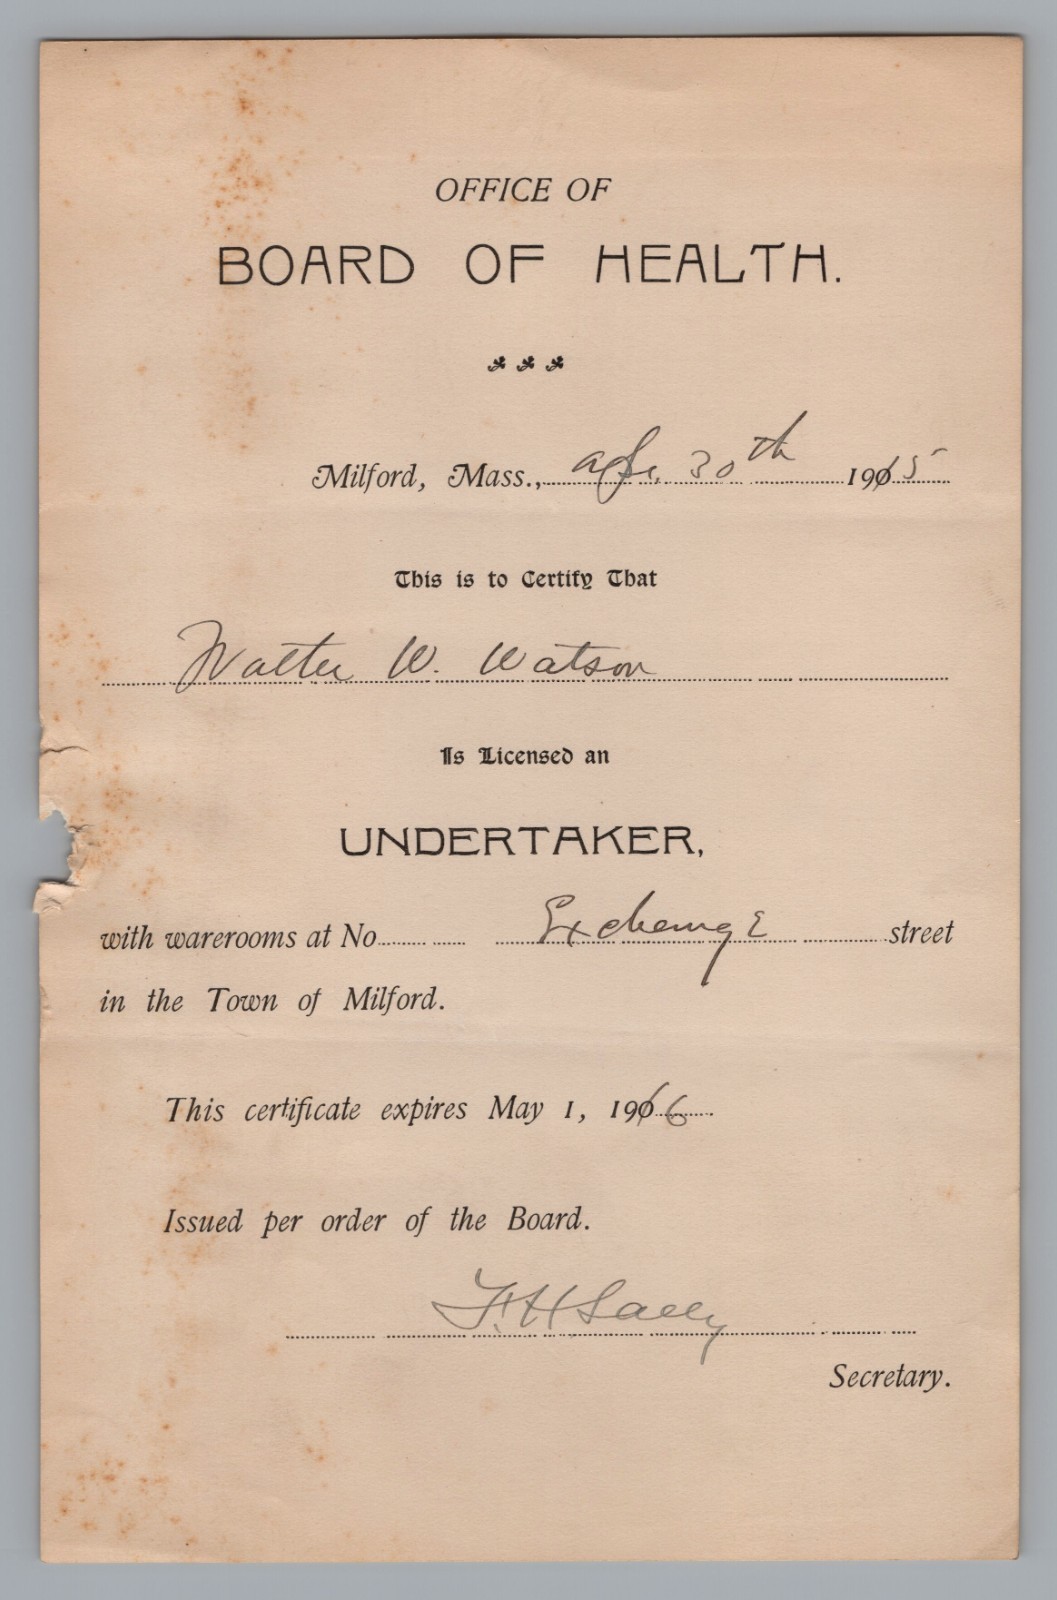 OFFICE OF
BOARD OF HEALTH.
Milford, Mass., Apr. 30th 1915
This is to Certify That
Walter W. Watson
Is Licensed an
UNDERTAKER,
with warerooms at No Exchange street
in the Town of Milford.
This certificate expires May 1, 1916
Issued per order of the Board.
F. H. Lally
Secretary.